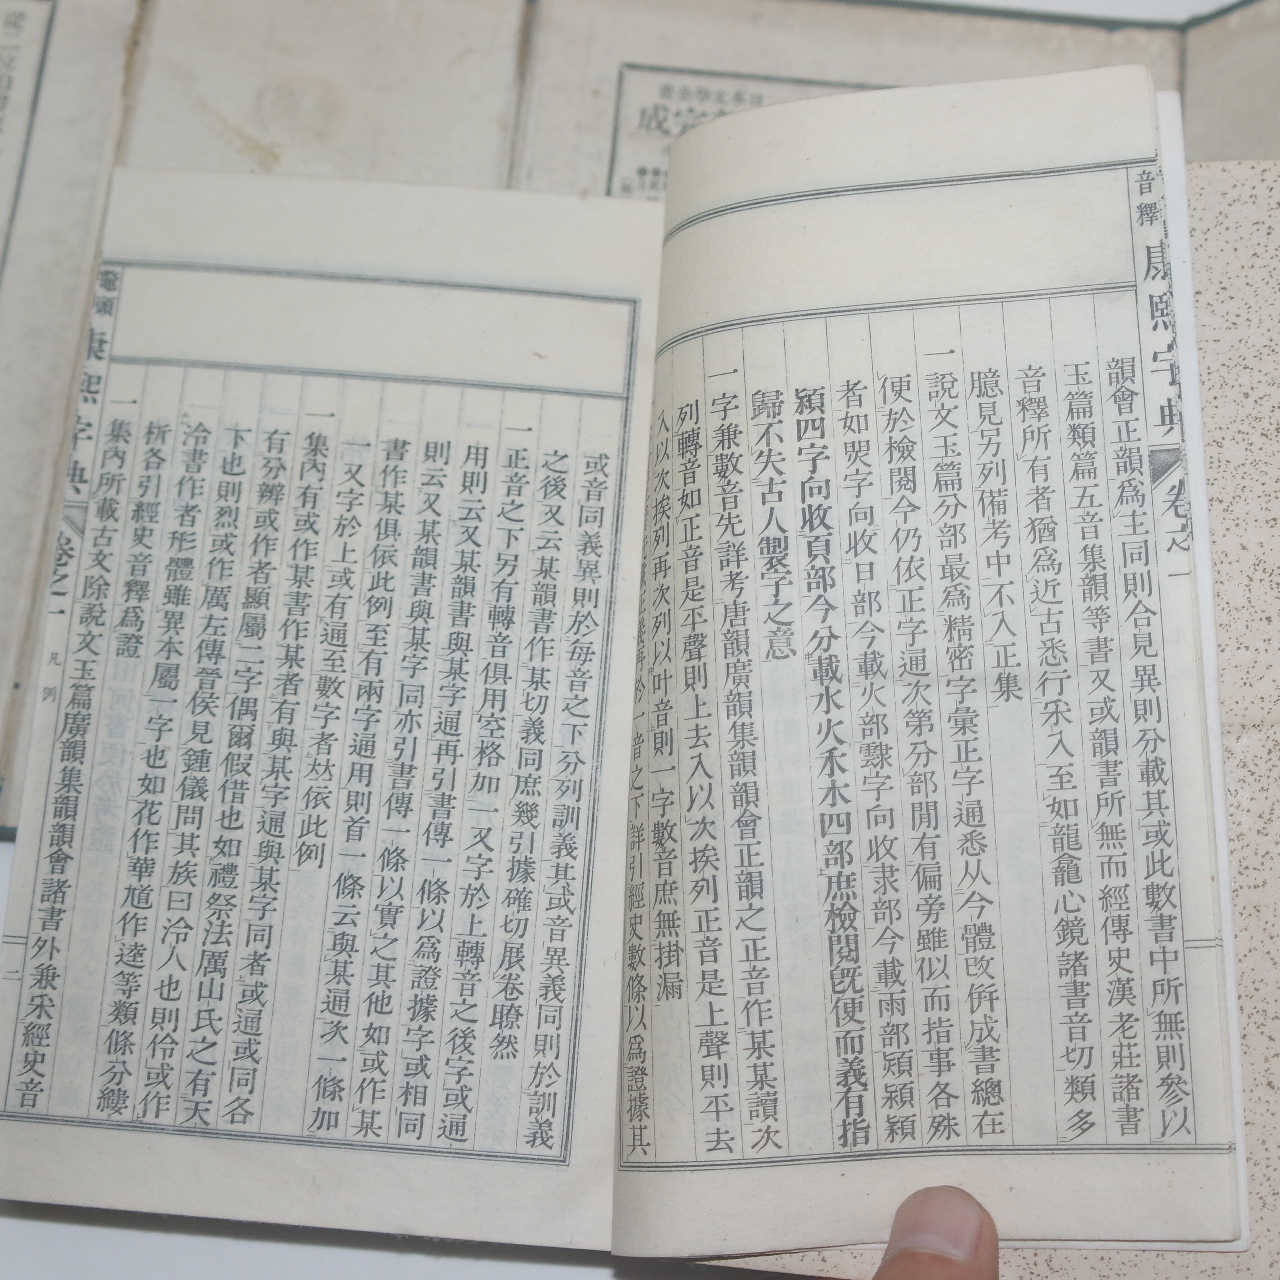 音釋康熙字典 卷之一
韻會正韻爲主同則合見異則分載其或此數書中所無則參以
玉篇類篇五音集韻等書又或韻書所無而經傳史漢老莊諸書
音釋所有者猶爲近古悉行采入至如龍龕心鏡諸書音切類多
臆見另列備考中不入正集
一說文玉篇分部最爲精密字彙正字通悉从今體改倂成書總在
便於檢閱今仍依正字通次第分部閒有偏旁雖似而指事各殊
者如煛字向收日部今載火部隸字向收隶部今載雨部熲潁穎
穎四字向收頁部今分載水火禾木四部庶檢閱旣便而義有指
歸不失古人製字之意
一字兼數音先詳考唐韻廣韻集韻韻會正韻之正音作某某讀次
列轉音如正音是平聲則上去入以次挨列正音是上聲則平去
入以次挨列再次列以叶音則一字數音庶無掛漏
音之下詳引經史數條以爲證據其
或音同義異則於每音之下分列訓義其或音異義同則於訓義
之後又云某韻書作某切義同庶幾引據確切展卷瞭然
一正音之下另有轉音俱用空格加一又字於上轉音之後字或通
用則云又某韻書與某字通再引書傳一條以爲證據字或相同
則云又某韻書與某字同亦引書傳一條以實之其他如或作某
書作某俱依此例至有兩字通用則首一條云與某通次一條加
一又字於上或有通至數字者𠀤依此例
一集內有或作某書作某者有與某字通與某字同者或通或同各
有分辨或作者顯屬二字偶爾假借也如禮祭法厲山氏之有天
下也則烈或作厲左傳晉侯見鍾儀問其族曰泠人也則伶或作
泠書作者形體雖異本屬一字也如花作華馗作逵等類條分縷
析各引經史音釋爲證
一集內所載古文除說文玉篇廣韻集韻韻會諸書外兼采經史音
鼇頭康熙字典 卷之一 凡例 二